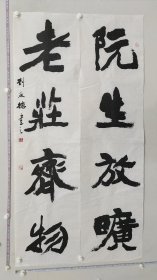 阮生放曠
老莊齊物